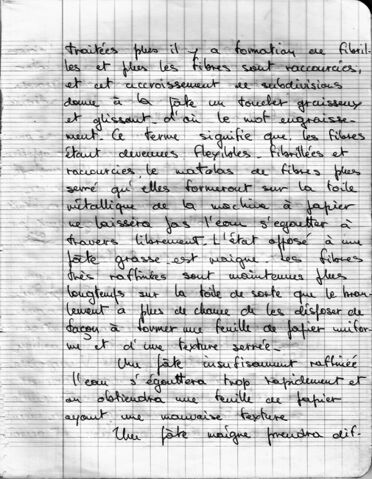 traitées plus il y a formation de fibril-
les et plus les fibres sont raccourcies,
et cet accroissement de subdivisions
donne à la pâte un toucher graisseux
et glissant d'où le mot engraisse-
ment. Ce terme signifie que les fibres
étant devenues flexibles, fibrillées et
raccourcies, le matelas de fibres plus
serré qu'elles formeront sur la toile
métallique de la machine à papier
ne laissera pas l'eau s'égoutter à
travers librement. L'état opposé à une
pâte grasse est maigre. Les fibres
très raffinées sont maintenues plus
longtemps sur la toile de sorte que le bran-
lement a plus de chance de les disposer de
façon à former une feuille de papier unifor-
me et d'une texture serrée.
Une pâte insuffisamment raffinée
l'eau s'égouttera trop rapidement et
on obtiendra une feuille de papier
ayant une mauvaise texture
Une pâte maigre prendra dif-